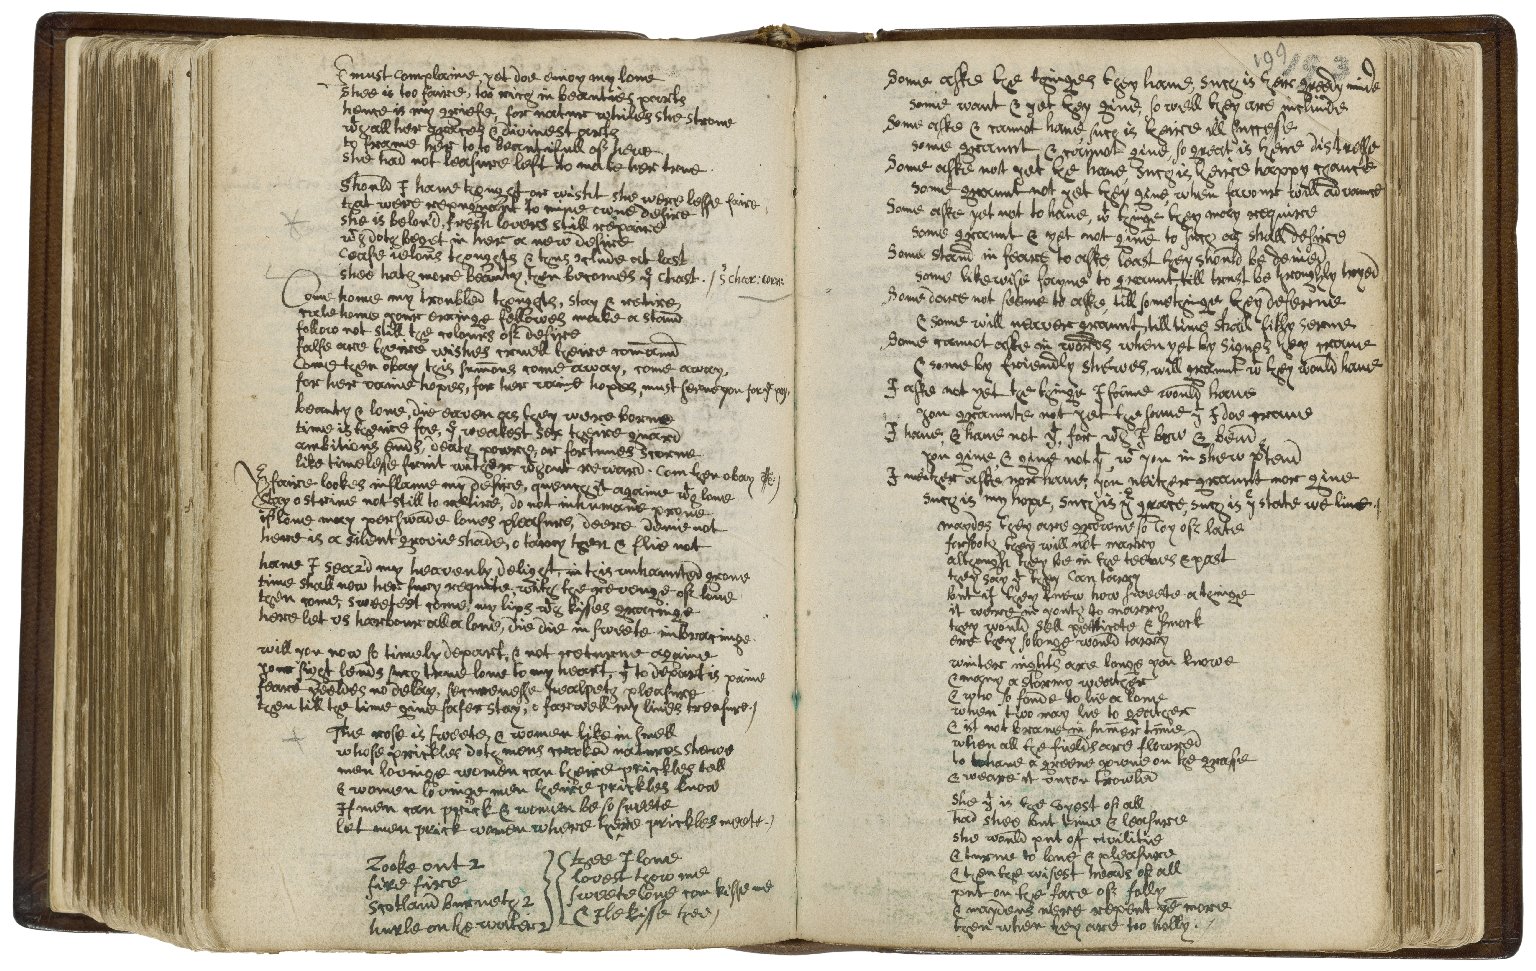 I must complaine, yet doe enioy my loue
Shee is too faire, too ritch in beauties parts
hence is my griefe, for nature whiles she stroue
wth all her graces & diuinest arts
to frame her to to beautifull of hewe
she had not leasure left to make her true.
Should I haue thought or wisht she were lesse faire
that were repugnant to mine owne desire
she is belou'd, fresh louers still repaire
wch doth beget in her a new desire
Cease ielous thoughts & thus conclude at last
shee hath more beauty then becomes ye chast.
Come home my troubled thoughts, stay & retire
calle home your erringe fellowes make a stand
follow not still the colours of desire
false are theire wishes cruell theire comand
Come then obay this sumons come away, come away,
for her vaine hopes, for her vaine hopes, must serue you for yr pay.
beauty & loue, die eauen as they were borne
time is theire foe, ye weakest sex theire guard
ambitions ends, death, power, or fortunes scorne
like timelesse fruit wither wthout reward. Com then obay &c)
If faire lookes inflame my desire, quench it againe wth loue
Stay o striue not still to retire, do not inhumane proue
if loue may perswade loues pleasure, deere denie not
here is a silent grouie shade, o tarry then & flie not
haue I seaz'd my heauenly delight, in this vnhaunted groue
time shall now her fury requite, wth the reuenge of loue
then come, sweetest come, my lips wth kisses gracinge
here let vs harbour all alone, die die in sweete imbracinge.
will you now so timely depart, & not returne againe
your sight lends such true loue to my heart, yt to depart is paine
feare yeeldes no delay, securenesse healpeth pleasure
then till the time giue safer stay, o farewell my liues treasure)
The rose is sweete, & women like in smell
whose prickles doth mens crooked natures shewe
men louinge women can theire prickles tell
& women louinge men theire prickles know
If men can prick & women be so sweete
let men prick women where there prickles meete.)
Looke out 2
fire fire
Scotland burneth 2
thee I loue
louest thow me
sweete loue com kisse me
& Ile kisse thee)
199
193
9
Some aske the thinges they haue, such is there greedy minde
some want & yet they giue, so well they are inclinde
Some aske & cannot haue, such is theire ill successe
some graunt & cannot giue, so great is theire distresse
Some aske not yet the haue such is theire happy chaunce
some graunt not yet they giue, when fauour will aduaunce
Some aske yet not to haue, the thinge they may require
some graunt & yet not giue to such as shall desire
Some stand in feare to aske least they should be denied
some likewise fayne to graunt till trust be throughly tryed
Some dare not seeme to aske, till some thinge they deserue
& some will neauer graunt, till time shall fitly serue
Some cannot aske in wordes when yet by signes they craue
& some by friendly shewes, will graunt wt they would haue
I aske not yet the thinge I faine would haue
you graunte not yet the same yt I doe craue
I haue, & haue not yt, for wch I bow & bend
you giue, & giue not yt, wch you in shew prtend
I neither aske nor haue, you neither graunt nor giue
such is my hope, such is yr grace, such is ye state we liue.
maydes they are growne so coy of late
forsooth they will not marry
although they be in the teenes & past
they say yt they can tarry
but if they knew how sweete a thinge
it were in youth to marry
they would sell petticote & smock
ere they so longe would tarry
winter nights are longe you knowe
& many a stormy weather
& who so fonde to lie a lone
when two may lie to geather
& ist not braue in sumer time
when all the fields are flowred
to haue a greene gowne on the grasse
& weare it vncontrowled
She yt is the coyest of all
had shee but time & leasure
she would put of ciuilitie
& turne to loue & pleasure
& then the wisest heads of all
put on the face of folly
& maydens neere repent ye more
then when they are too holly.